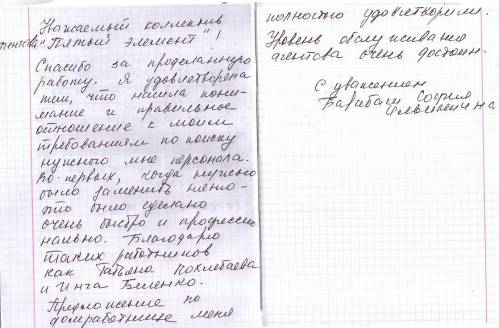 Уважаемый коллектив
агентства "Пятый элемент"!
Спасибо за проделанную
работу. Я удовлетворена
тем, что нашла пони-
мание и правильное
отношение к моим
требованиям по поиску
нужного мне персонала.
Во-первых, когда нужно
было заменить няню-
это было сделано
очень быстро и професси
нально. Благодарю
таких работников
как Татьяна Похлебаева
и Инга Биленко.
Предложение по
домработнице меня
полностью удовлетворили.
Уровень обслуживания
агентсва очень достоен.
С уважением
Барабаш София